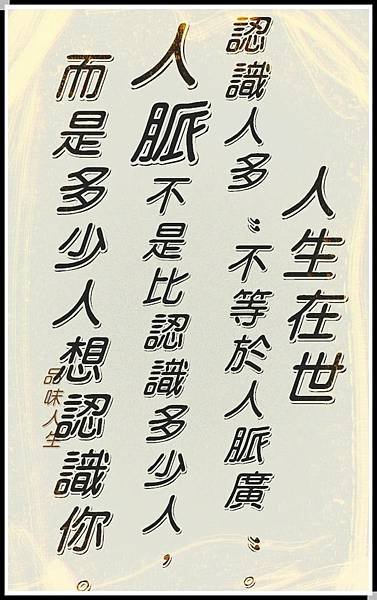 人生在世
認識人多〝不等於人脈廣〞。
人脈不是比認識多少人，
而是多少人想認識你。
品味人生